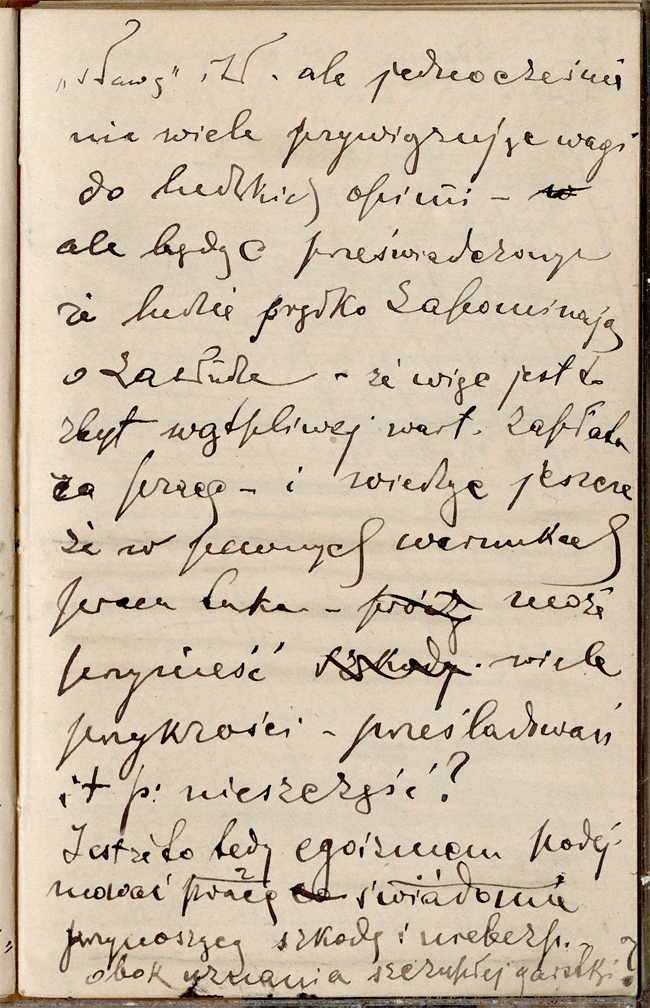 „sławę" i t d. ale jednocześnie
nie wiele przywiązując wagi
do ludzkich opinii –
ale będąc przeświadczonym
że ludzie prędko zapominają
o zasłudze – że więc jest to
zbyt wątpliwej wart. zapłata
za pracę – i wiedząc jeszcze
że w pewnych warunkach
praca taka – prócz może
przynieść szkody. wiele
przykrości – prześladowań
i t p: nieszczęść?
Jestże to tedy egoizmem podej-
mować pracę co świadomie
przynoszącą szkodę i niebezp.
obok uznania szczupłej garstki?